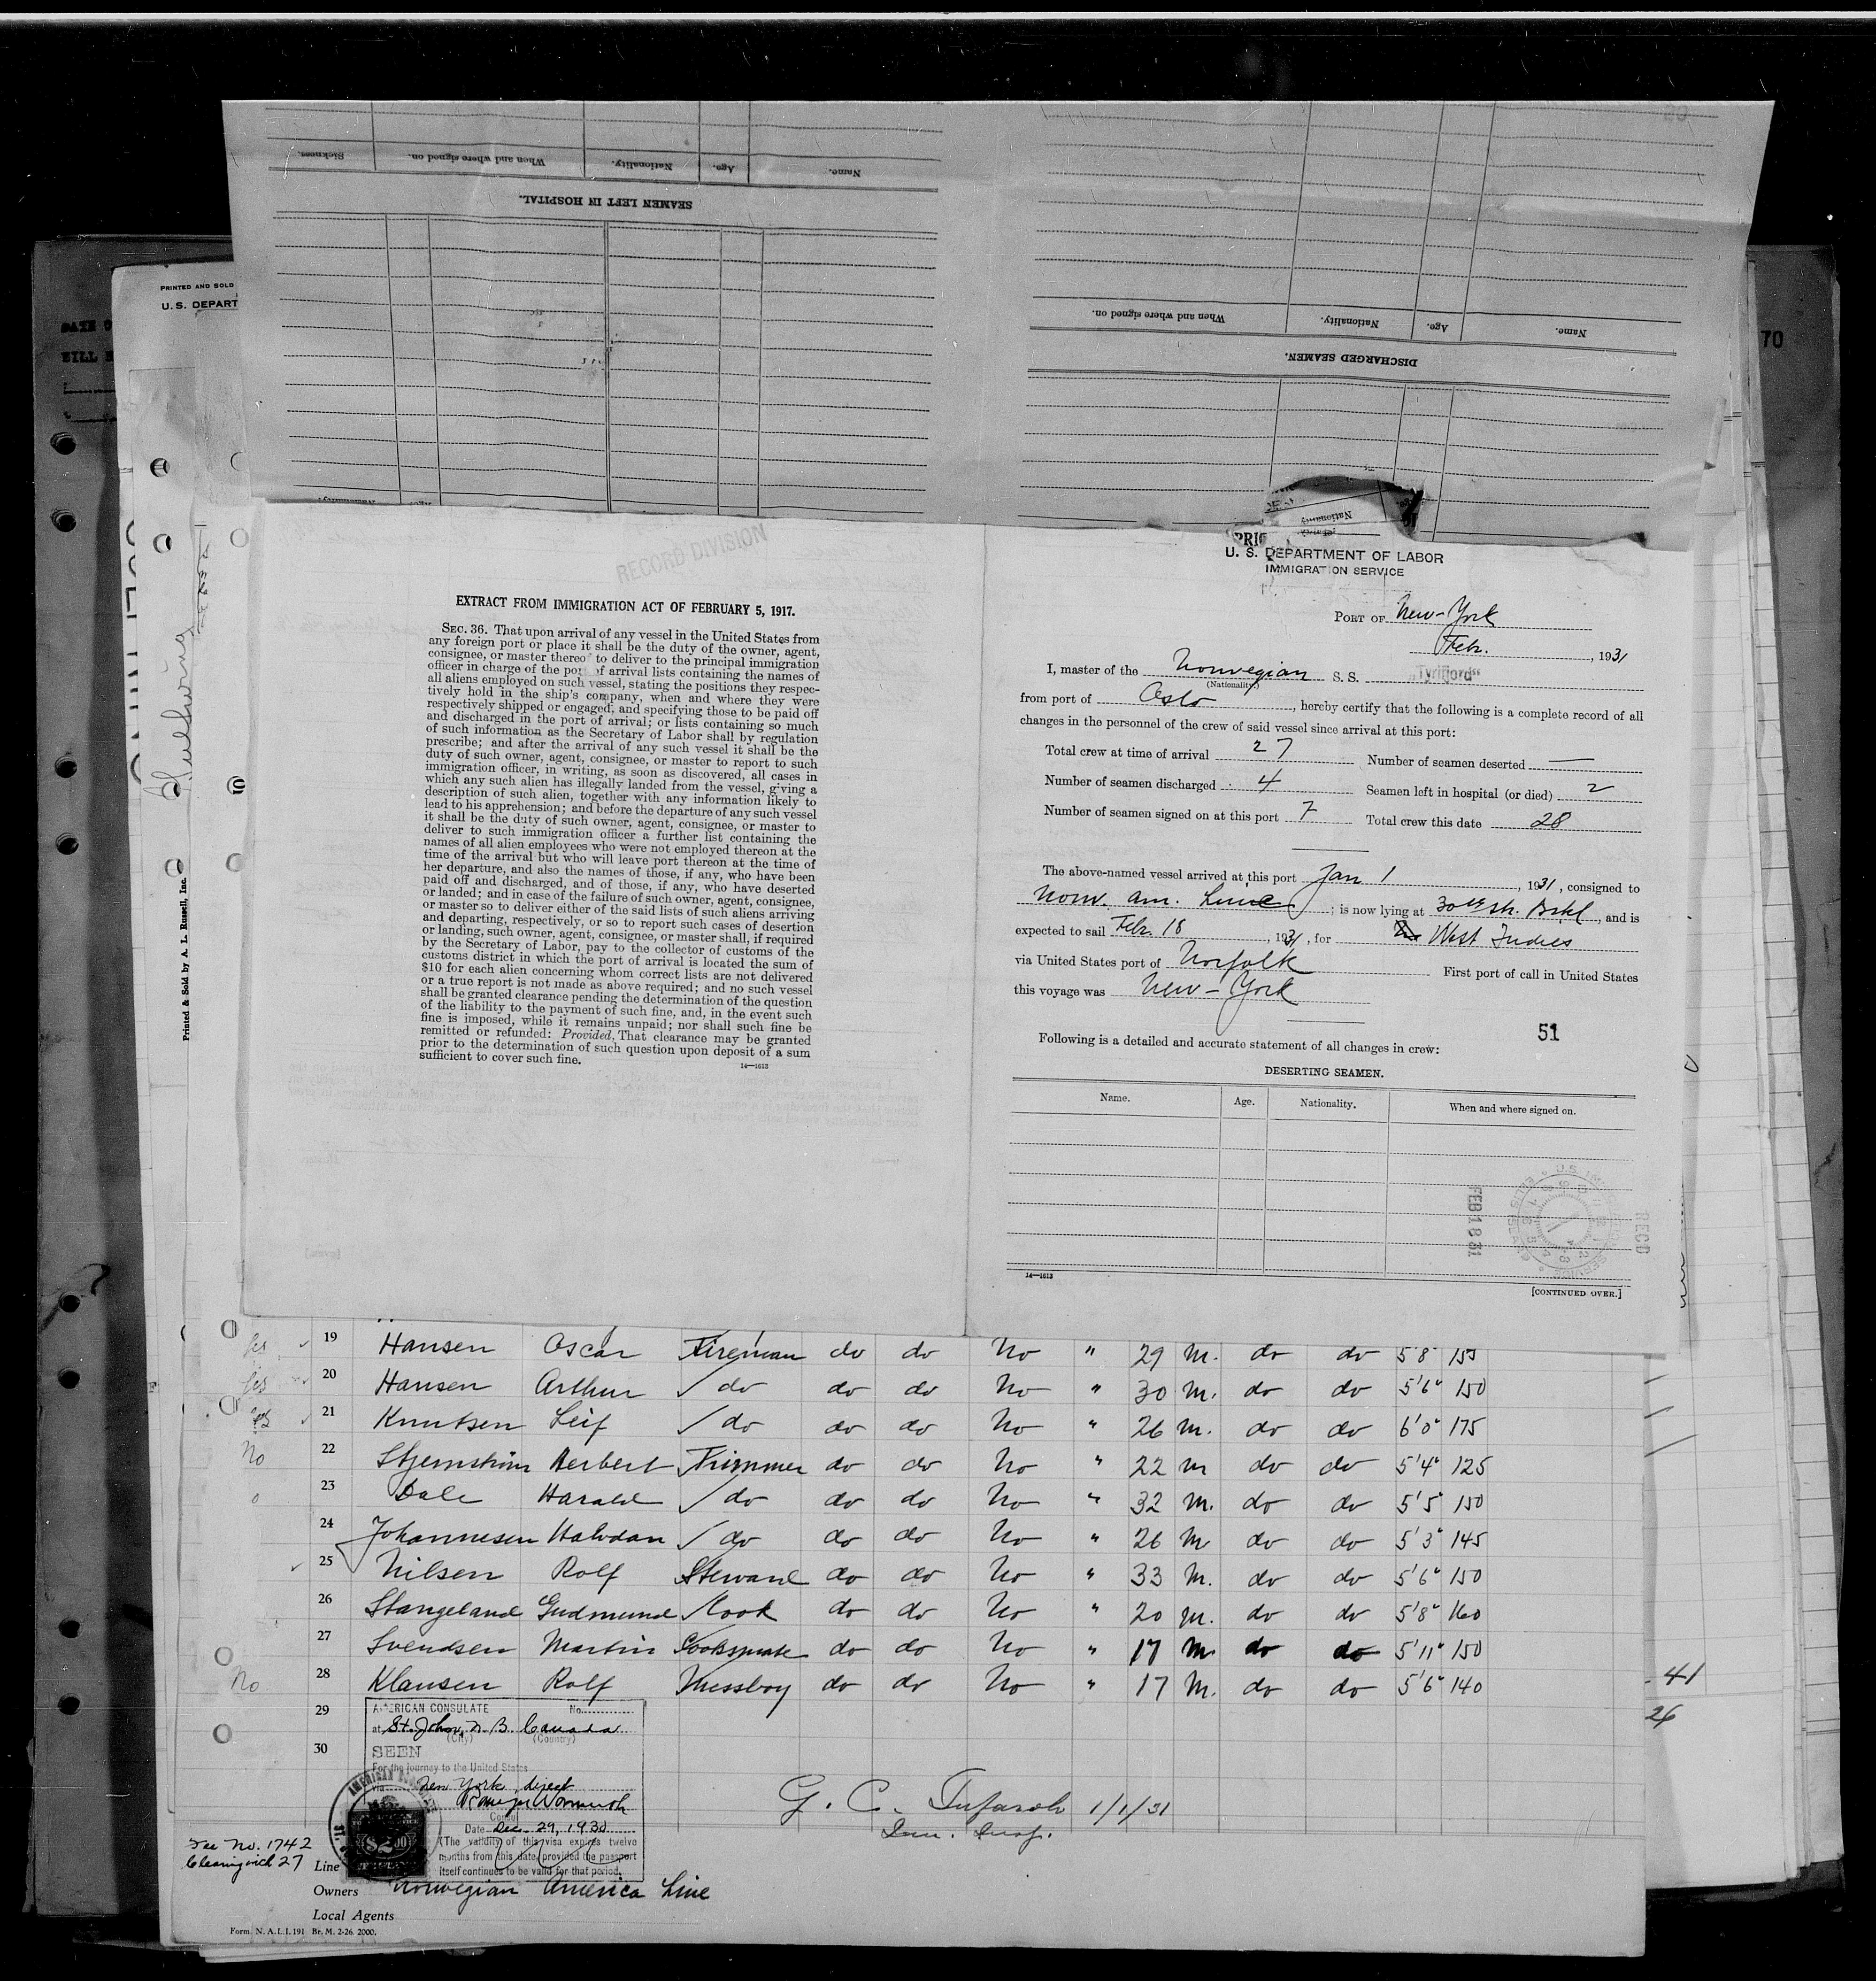 Sickness.
When and where signed on.
Nationality.
Age.
Name.
SEAMEN LEFT IN HOSPITAL.
When and where signed on.
Nationality.
Age.
Name.
DISCHARGED SEAMEN.
Nationality
PRINTED AND SOLD
U. S. DEPART
70
RECORD DIVISION
EXTRACT FROM IMMIGRATION ACT OF FEBRUARY 5, 1917.
SEC. 36. That upon arrival of any vessel in the United States from
any foreign port or place it shall be the duty of the owner, agent,
consignee, or master thereo to deliver to the principal immigration
officer in charge of the port of arrival lists containing the names of
all aliens employed on such vessel, stating the positions they respec-
tively hold in the ship's company, when and where they were
respectively shipped or engaged, and specifying those to be paid off
and discharged in the port of arrival; or lists containing so much
of such information as the Secretary of Labor shall by regulation
prescribe; and after the arrival of any such vessel it shall be the
duty of such owner, agent, consignee, or master to report to such
immigration officer, in writing, as soon as discovered, all cases in
which any such alien has illegally landed from the vessel, giving a
description of such alien, together with any information likely to
lead to his apprehension; and before the departure of any such vessel
it shall be the duty of such owner, agent, consignee, or master to
deliver to such immigration officer a further list containing the
names of all alien employees who were not employed thereon at the
time of the arrival but who will leave port thereon at the time of
her departure, and also the names of those, if any, who have been
paid off and discharged, and of those, if any, who have deserted
or landed; and in case of the failure of such owner, agent, consignee,
or master so to deliver either of the said lists of such aliens arriving
and departing, respectively, or so to report such cases of desertion
or landing, such owner, agent, consignee, or master shall, if required
by the Secretary of Labor, pay to the collector of customs of the
customs district in which the port of arrival is located the sum of
$10 for each alien concerning whom correct lists are not delivered
or a true report is not made as above required; and no such vessel
shall be granted clearance pending the determination of the question
of the liability to the payment of such fine, and, in the event such
fine is imposed, while it remains unpaid; nor shall such fine be
remitted or refunded: Provided, That clearance may be granted
prior to the determination of such question upon deposit of a sum
sufficient to cover such fine.
14—1613
Printed & Sold by A. L. Russell, Inc.
U. S. DEPARTMENT OF LABOR
IMMIGRATION SERVICE
PORT OF New-York
Febr. , 1931
I, master of the Norwegian S. S. "Tyrifjord"
(Nationality)
from port of Oslo, hereby certify that the following is a complete record of all
changes in the personnel of the crew of said vessel since arrival at this port:
Total crew at time of arrival 27 Number of seamen deserted —
Number of seamen discharged 4 Seamen left in hospital (or died) 2
Number of seamen signed on at this port 7 Total crew this date 28
The above-named vessel arrived at this port Jan 1, 1931, consigned to
Norw. Am. Line; is now lying at 30th str. Brkl, and is
expected to sail Febr. 18, 1931, for West Indies
via United States port of Norfolk First port of call in United States
this voyage was New-York
51
Following is a detailed and accurate statement of all changes in crew:
DESERTING SEAMEN.
Name. Age. Nationality. When and where signed on.
FEB 18 31
RECD
14—1613
[CONTINUED OVER.]
yes 19 Hansen Oscar Fireman do do No " 29 M. do do 5'8" 155
yes 20 Hansen Arthur do do do No " 30 M. do do 5'6" 150
yes 21 Knutsen Leif do do do No " 26 M. do do 6'0" 175
No 22 Stjernström Herbert Trimmer do do No " 22 M do do 5'4" 125
23 Dale Harald do do do No " 32 M. do do 5'5" 150
24 Johannesen Halvdan do do do No " 26 M do do 5'3" 145
25 Nilsen Rolf Steward do do No " 33 M. do do 5'6" 150
26 Stangeland Gudmund Cook do do No " 20 M. do do 5'8" 160
27 Svendsen Martin Cooksmate do do No " 17 M. do do 5'11" 150
No 28 Klausen Rolf Messboy do do No " 17 M. do do 5'6" 140
41
26
29
30
AMERICAN CONSULATE No.
at St. John, N. B. Canada
(City) (Country)
SEEN
For the journey to the United States
via New York direct
Consul
Date Dec. 29, 1930
(The validity of this visa expires twelve
months from this date, provided the passport
itself continues to be valid for that period.
$2.00
G. C. 1/1/31
Imm. Insp.
Fee No. 1742
27
Line
Owners Norwegian America Line
Local Agents
Form. N. A. L. I. 191 Br. M. 2-26. 2000.